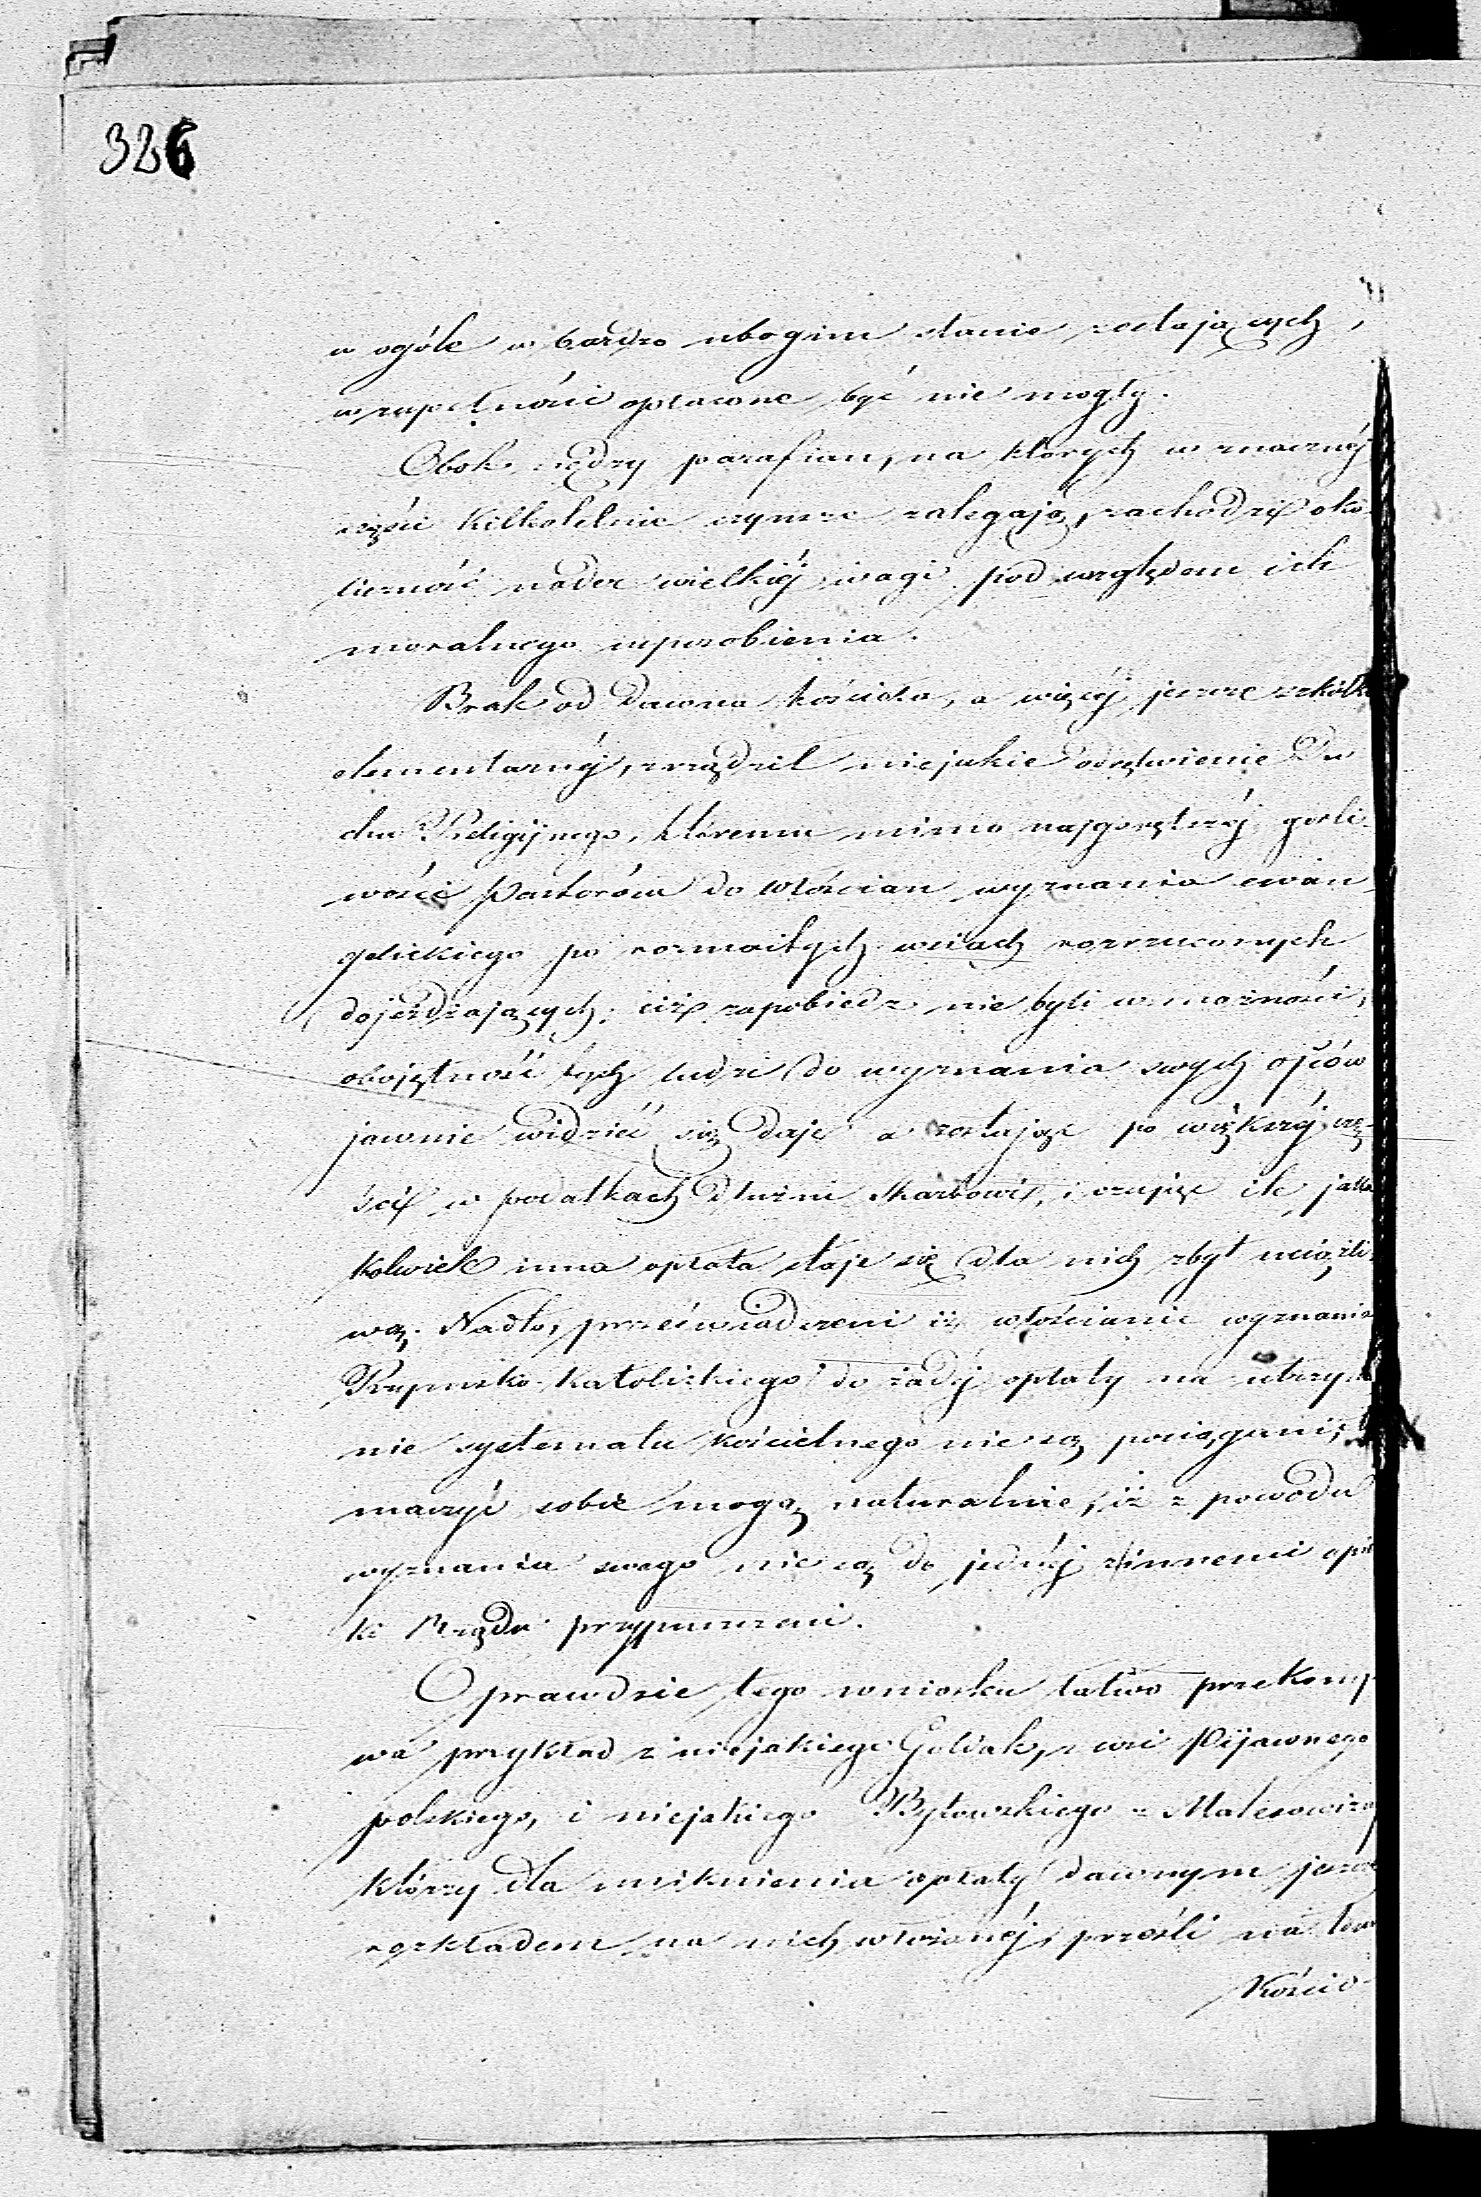 326
w ogóle w bardzo ubogim stanie zostających,
w zupełności opłacone być nie mogły.
Obok nędzy parafian, na których w znacznéj
części kilkoletnie czynsze zalegają, zachodzi oko-
liczność nader wielkiéj wagi pod względem ich
moralnego usposobienia.
Brak od dawna kościoła, a więcéj jeszcze szkółki
elementarnéj, zrządził niejakie odrętwienie Du
cha Religijnego, któremu mimo najgorętszéj gorli-
wości Pastorów do włościan wyznania ewan-
gelickiego po rozmaitych wsiach rozrzuconych
dojeżdzających, iż zapobiedz nie byli w możności,
obojętność tych ludzi do wyznania swych ojców
jawnie widzieć się daje a zostając po większéj czę-
ści w podatkach dłużni Skarbowi, i czując ile jaka
kolwiek inna opłata staje się dla nich zbyt uciążli-
wą. Nadto, przeświadczeni iż włościanie wyznania
Rzymsko-Katolickiego do żadnéj opłaty na utrzyma
nie systematu kościelnego nie są pociągani,
maczyć sobie mogą naturalnie, iż z powodu
wyznania swego nie są do jednéj z innemi opie
ki Rządu przypuszczeni.
O prawdzie tego wniosku łatwo przekony-
wa przykład z niejakiego Goldak, z wsi Pijawnego
polskiego, i niejakiego Bytowskiego z Malesowizny
którzy dla uniknienia opłaty dawnym jeszcze
rozkładem na nich włożonéj, przeszli na łono
Kościo-